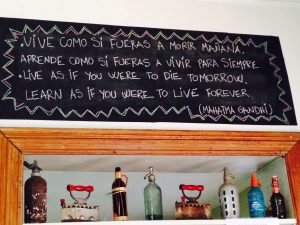 . VIVE COMO SI FUERAS A MORIR MAÑANA.
APRENDE COMO SI FUERAS A VIVIR PARA SIEMPRE
. LIVE AS IF YOU WERE TO DIE TOMORROW.
LEARN AS IF YOU WERE TO LIVE FOREVER
(MAHATMA GANDHI)